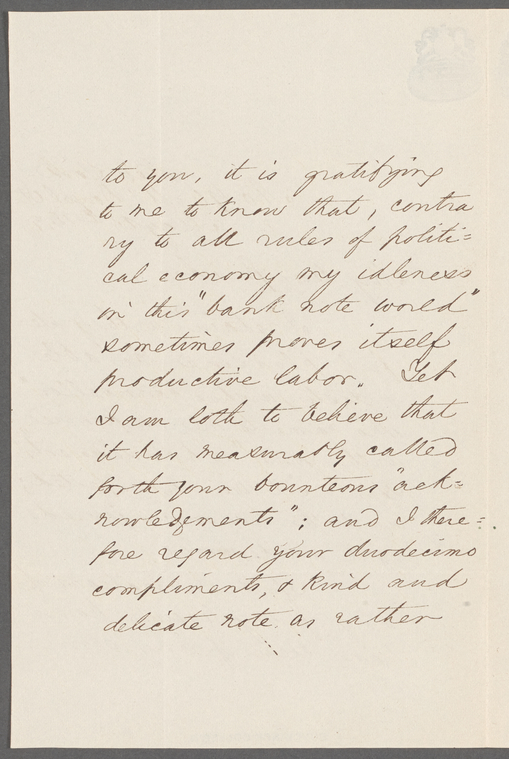 to you, it is gratifying
to me to know that, contra
ry to all rules of politi=
cal economy my idleness
in this "bank note world"
sometimes proves itself
productive labor. Yet
I am loth to believe that
it has measurably called
forth your bounteous "ack=
nowledgements"; and I there=
fore regard your duodecimo
compliments, & kind and
delicate note as rather